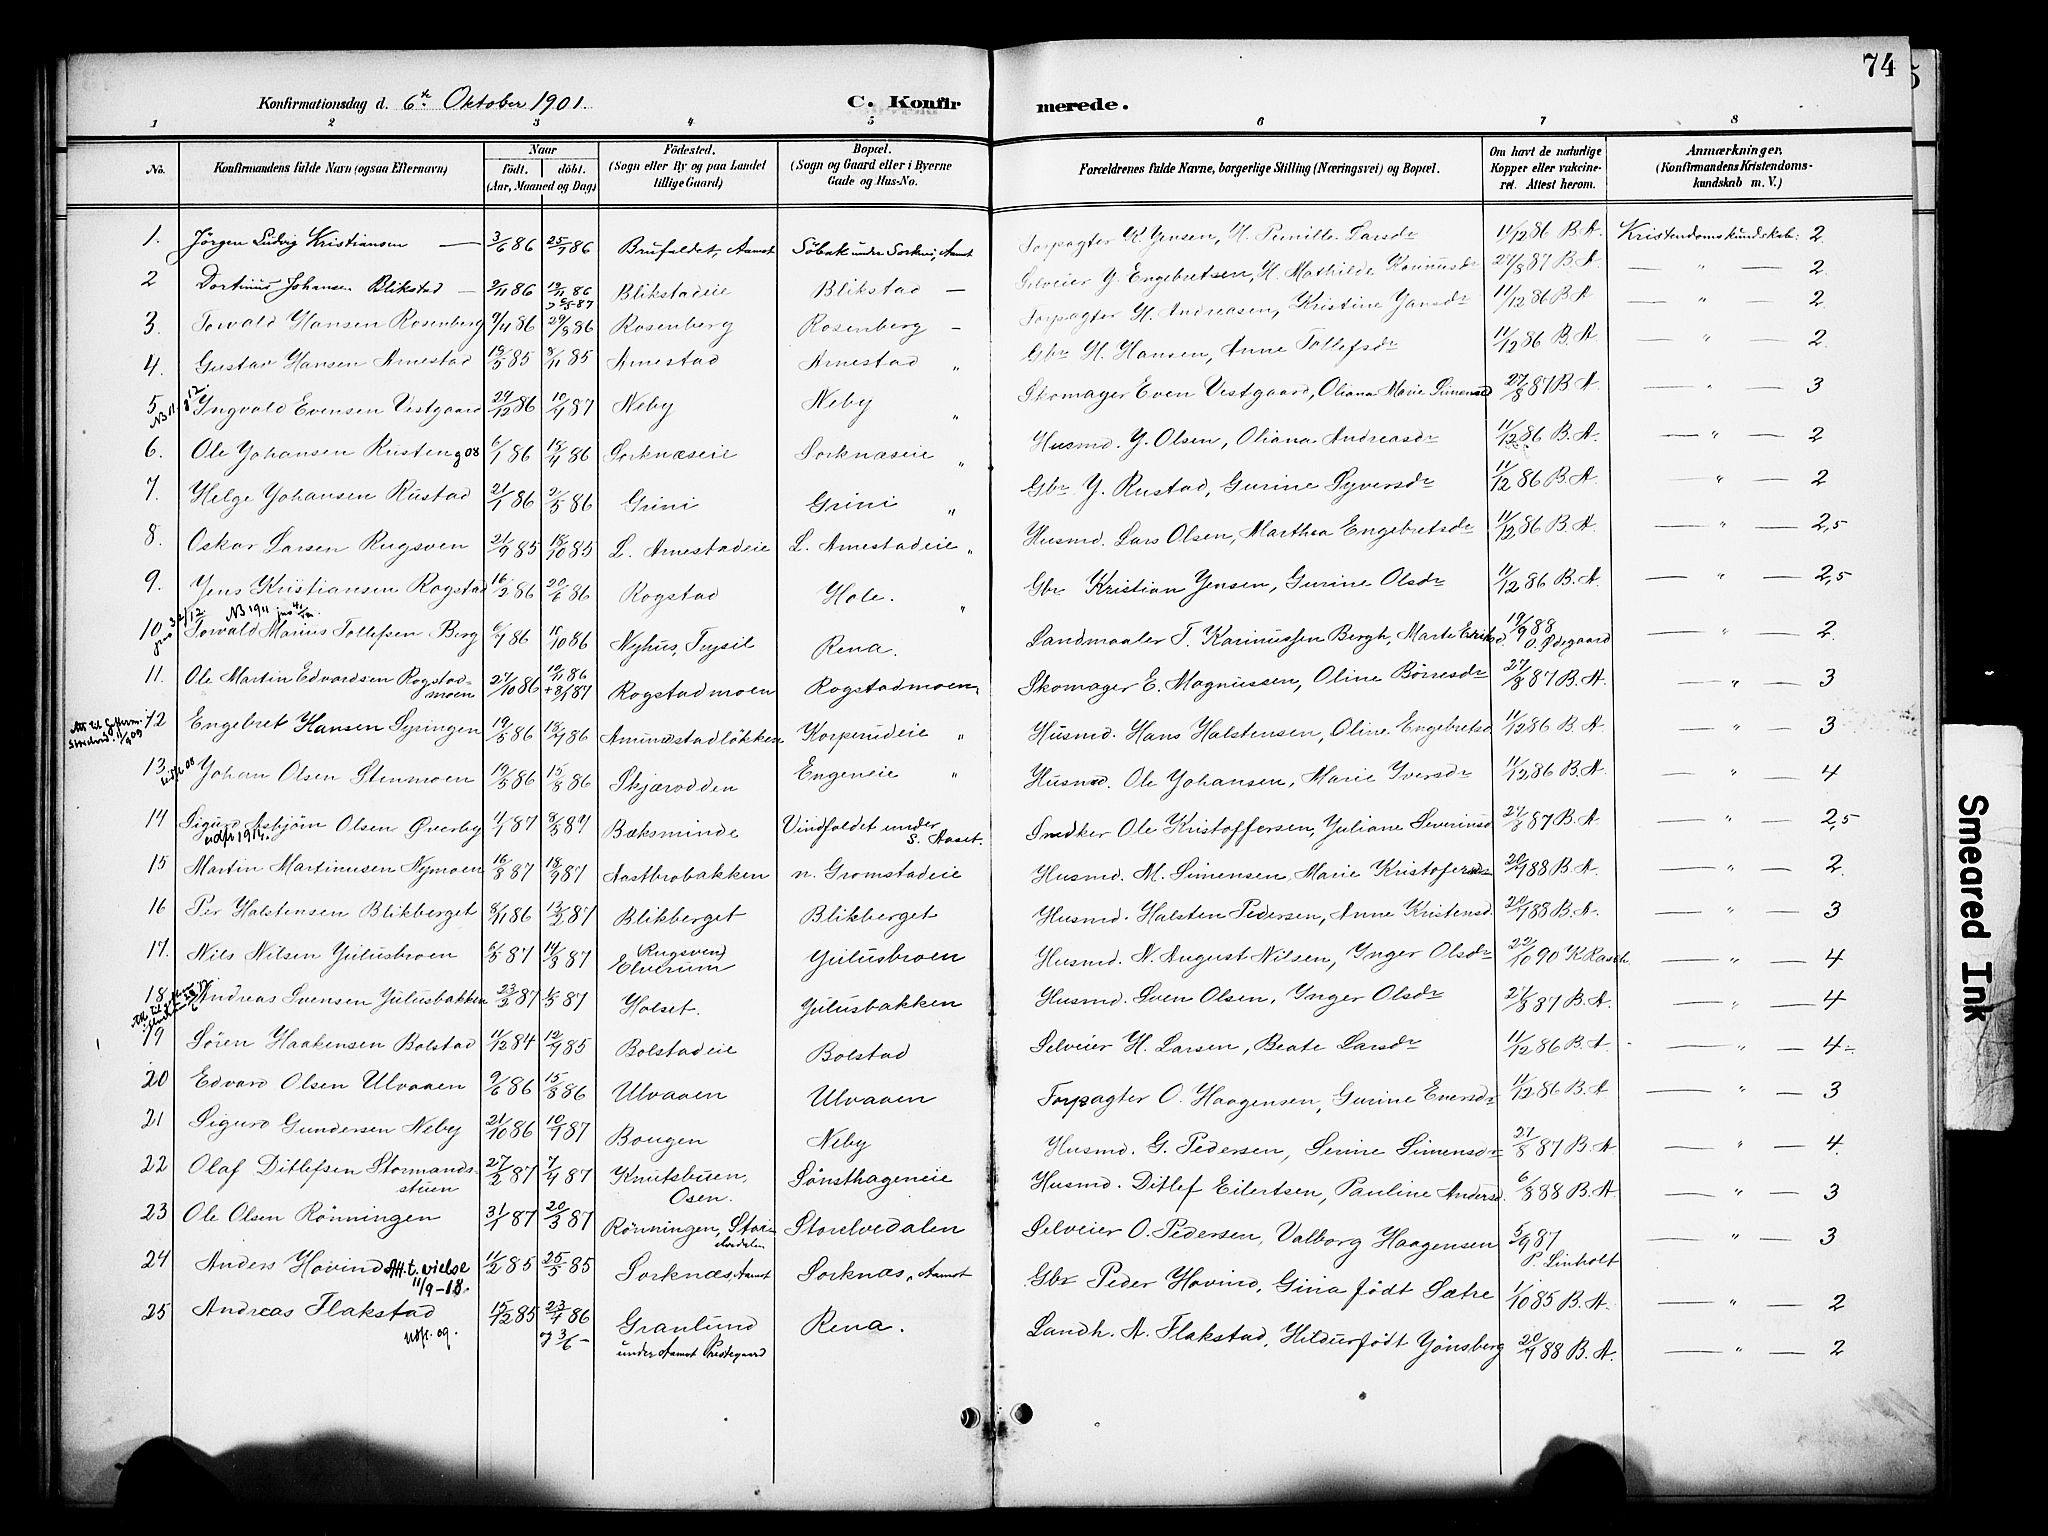 74
Konfirmationsdag d. 6te Oktober 1901.
C. Konfir merede.
1 2 3 4 5 6 7 8
No. Konfirmandens fulde Navn (ogsaa Efternavn) Naar født. døbt. (Aar, Maaned og Dag) Fødested. (Sogn eller By og paa Landet tillige Gaard) Bopæl. (Sogn og Gaard eller i Byerne Gade og Hus-No. Forældrenes fulde Navne, borgerlige Stilling (Næringsvei) og Bopæl. Om havt de naturlige Kopper eller vakcineret. Attest herom. Anmærkninger, (Konfirmandens Kristendomskundskab m. V.)
1. Jörgen Ludvig Kristiansen — 3/6 86 25/7 86 Brufaldet, Aamot Söbak under Sorknes, Aamot Forpagter K. Jensen, H. Pernille Larsdr 11/12 86 B.A. Kristendomskundskab: 2.
2 Dortinus Johansen Blikstad — 2/11 86 19/11 86 Blikstadeie Blikstad — Selveier J. Engebretsen, H. Mathilde Karinusdr 27/8 87 B.A. — " — 2.
3. Torvald Hansen Rosenberg 9/4 86 29/8 86 Rosenberg Rosenberg — Forpagter H. Andreasen, Kristine Jansdr 11/12 86 B.A — " — 2
4. Gustav Hansen Arnestad 19/5 85 8/11 85 Arnestad Arnestad " Gbr H. Hansen, Anne Tollefsdr 11/12 86 B.A. — " — 2.
5 Yngvald Evensen Vestgaard 29/12 86 10/4 87 Neby Neby " Skomager Even Vestgaard, Oliana Marie Simensd 27/8 87 B.A. — " — 3
6. Ole Johansen Rusten 6/1 86 18/4 86 Sorknæseie Sorknæseie " Husmd. J. Olsen, Oliana Andreasdr 11/12 86 B.A. — " — 2
7. Helge Johansen Rustad 21/1 86 2/5 86 Grini Grini " Gbr J. Rustad, Gurine Syversdr 11/12 86 B.A. — " — 2
8. Oskar Larsen Rugsven 21/9 85 18/10 85 L. Arnestadeie L. Arnestadeie " Husmd. Lars Olsen, Marthea Engebretsdr 11/12 86 B.A. — " — 2,5
9. Jens Kristiansen Rogstad 16/2 86 20/6 86 Rogstad Hole. " Gbr Kristian Jensen, Gurine Olsdr 11/12 86 B.A. — " — 2,5
10. Torvald Marius Tollefsen Berg 6/7 86 10/10 86 Nyhus, Trysil Rena. Landmaaler T. Karinussen Bergh, Marte Eriksd. 19/9 88 O. Ødegaard — " — 2.
11. Ole Martin Edvardsen Rogstadmoen 27/10 86 19/11 86 Rogstadmoen Rogstadmoen Skomager E. Magnussen, Oline Börresdr 27/8 87 B.A. — " — 3
12 Engebret Hansen Syringen 19/5 86 18/7 86 Amundstadlökken Korperudeie " Husmd. Hans Halstensen, Oline Engebretsd 11/12 86 B.A. — " — 3
13. Johan Olsen Stenmoen 19/5 86 15/8 86 Skjærodden Engeneie " Husmd. Ole Johansen, Marie Iversdr 11/12 86 B.A. — " — 4
14 Sigurd Asbjörn Olsen Øverby udfl 1914. 11/1 87 8/5 87 Bæksminde Vindfaldet under S. Aaset. Snedker Ole Kristoffersen, Juliane Severinsd 27/8 87 B.A. — " — 2,5
15 Martin Martinusen Nymoen 16/8 87 18/9 87 Aastbrobakken n. Gromstadeie Husmd. M. Simensen, Marie Kristofersdr 20/7 88 B.A. — " — 2.
16 Per Halstensen Blikberget 8/11 86 13/2 87 Blikberget Blikberget Husmd. Halsten Pedersen, Anne Kristensd. 20/7 88 B.A. — " — 3
17. Nils Nilsen Julusbroen 6/3 87 14/3 87 Rugsven, Elverum Julusbroen Husmd. N. August Nilsen, Inger Olsdr 22/10 90 K Rasch — " — 4
18. Andreas Svensen Julusbakken 23/2 87 1/5 87 Holset. Julusbakken Husmd. Sven Olsen, Inger Olsdr 27/8 87 B.A. — " — 4
19 Sören Haakensen Bolstad 11/12 84 12/4 85 Bolstadeie Bolstad Selveier H. Larsen, Beate Larsdr 11/12 86 B.A. — " — 4
20 Edvard Olsen Ulvaaen 9/6 86 15/8 86 Ulvaaen Ulvaaen Forpagter O. Haagensen, Gurine Eversdr 11/12 86 B.A — " — 3
21 Sigurd Gundersen Neby 21/10 86 10/4 87 Bougen Neby Husmd. G. Pedersen, Serine Simensdr 27/8 87 B.A. — " — 4.
22 Olaf Ditlefsen Stormandsstuen 27/2 87 7/4 87 Knutsbuen, Osen. Sönsthageneie Husmd. Ditlef Eilertsen, Pauline Andersd. 6/8 88 B.A. — " — 3
23 Ole Olsen Rönningen 31/1 87 20/3 87 Rönningen, Storelvedalen Storelvedalen Selveier O. Pedersen, Valborg Haagensen 5/9 87 P. Linholt — " — 3
24 Anders Hovind Att. t. vielse 11/9-18. 11/2 85 25/5 85 Sorknæs, Aamot Sorknæs, Aamot Gbr Peder Hovind, Gina født Sætre 1/10 85 B.A. — " — 2
25 Andreas Flakstad Udfl. 09. 15/12 85 23/4 86 Granlund under Aamot Prestegaard Rena. Landh. A. Flakstad, Hildur født Jönsberg 20/7 88 B.A. — " — 2
Smeared Ink